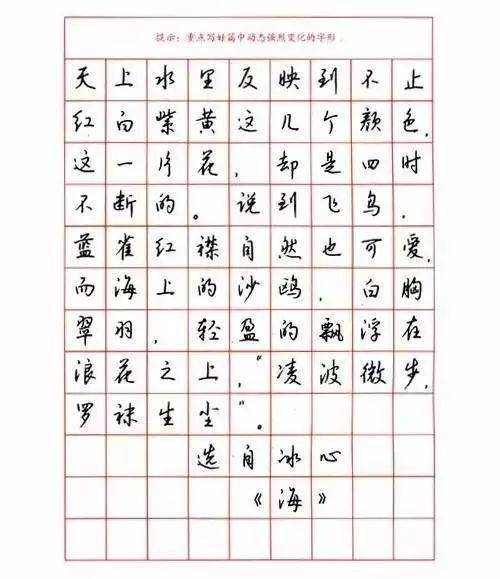 提示：重点写好篇中动态强烈变化的字形。
天上水里反映到不止
红白紫黄这几个颜色，
这一片花，却是四时
不断的。说到飞鸟，
蓝雀红襟自然也可爱，
而海上的沙鸥，白胸
翠羽，轻盈的飘浮在
浪花之上，“凌波微步，
罗袜生尘”。
选自冰心
《海》